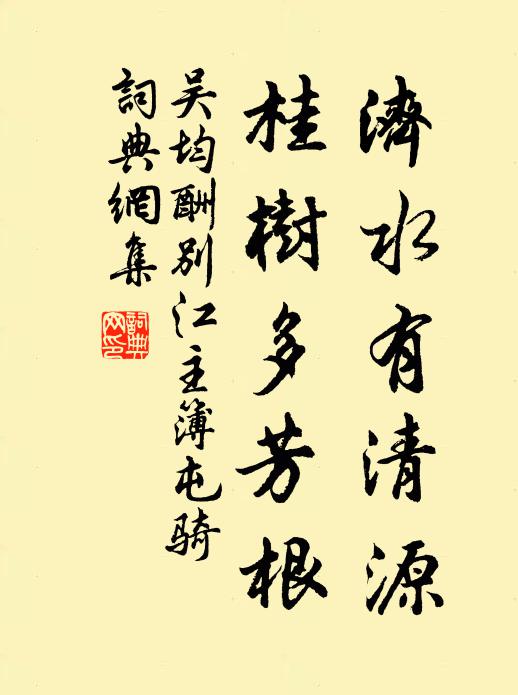 濟水有清源
桂樹多芳根
吴均酬別江主簿屯騎
詞典網集
詞典网印